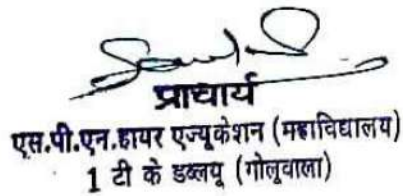 प्राचार्य
एस.पी.एन.हायर एज्यूकेशन (महाविद्यालय)
1 टी के डब्लयू (गोलुवाला)